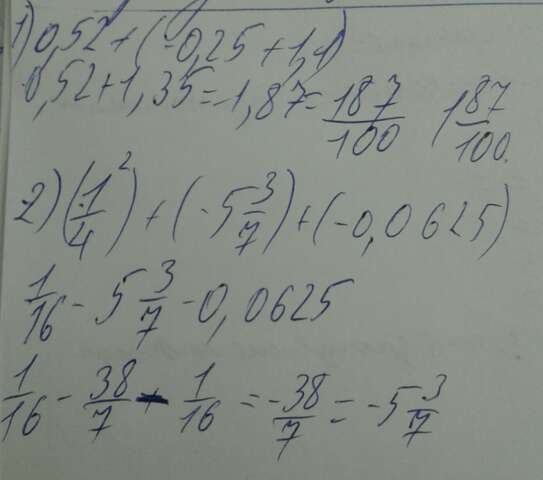 1) 0,52 + (-0,25 + 1,1)
0,52 + 1,35 = 1,87 = 187/100 1 87/100.
2) (1/4)² + (-5 3/7) + (-0,0625)
1/16 - 5 3/7 - 0,0625
1/16 - 38/7 - 1/16 = -38/7 = -5 3/7